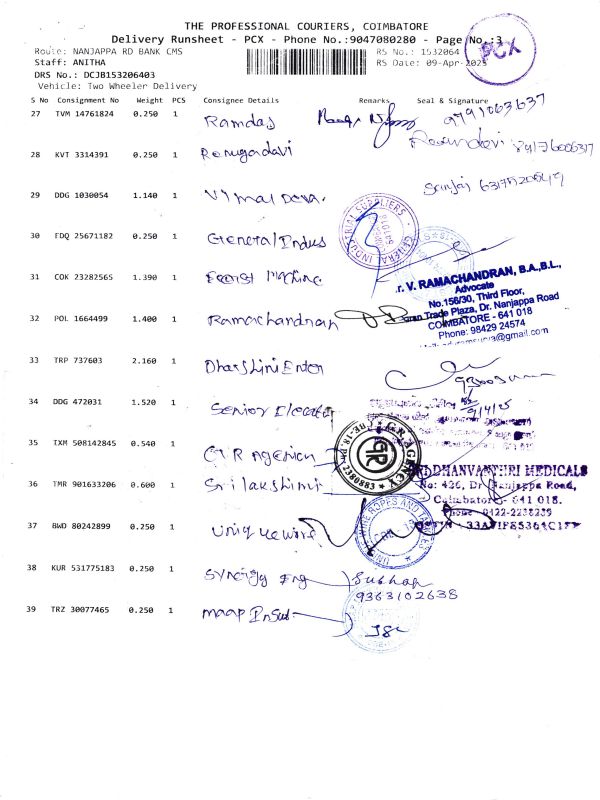 THE PROFESSIONAL COURIERS, COIMBATORE
Delivery Runsheet - PCX - Phone No.:9047080280 - Page No.:3
PCX
Route: NANJAPPA RD BANK CMS RS No.: 1532064
Staff: ANITHA RS Date: 09-Apr-2025
DRS No.: DCJB153206403
Vehicle: Two Wheeler Delivery
S No Consignment No Weight PCS Consignee Details Remarks Seal & Signature
27 TVM 14761824 0.250 1 Ramdas 9791063637
28 KVT 3314391 0.250 1 Renugadavi
29 DDG 1030054 1.140 1 Vimal Deva.
30 FDQ 25671182 0.250 1 General Indus
GENERAL INDUSTRIAL SUPPLIERS
31 COK 23282565 1.390 1
.r. V. RAMACHANDRAN, B.A.,B.L.,
Advocate
No.156/30, Third Floor,
Trade Plaza, Dr. Nanjappa Road
COIMBATORE - 641 018
Phone: 98429 24574
32 POL 1664499 1.400 1 Ramachandran
33 TRP 737603 2.160 1 Dharshini Enter
34 DDG 472031 1.520 1 Senior Elecater
9/4/25
35 IXM 508142845 0.540 1 GR Agencies
36 TMR 901633206 0.600 1 Srilakshmi
DHANVANTHRI MEDICALS
No: 426, Dr. Nanjappa Road,
Coimbatore - 641 018.
Phone : 0422-2238239
37 BWD 80242899 0.250 1 Unique wire
WIRE ROPES AND
38 KUR 531775183 0.250 1 Synergy Eng
9363102638
39 TRZ 30077465 0.250 1 maap Insul